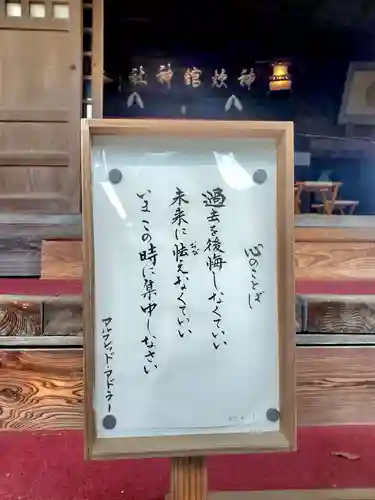 心のことば
過去を後悔しなくていい
未来に怯えなくていい
おび
いまこの時に集中しなさい
アルフレッド・アドラー
神炊館神社